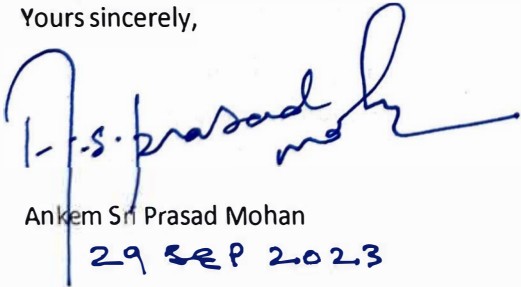 Yours sincerely,
A.s.prasad
moh
Ankem Sri Prasad Mohan
29 SEP 2023